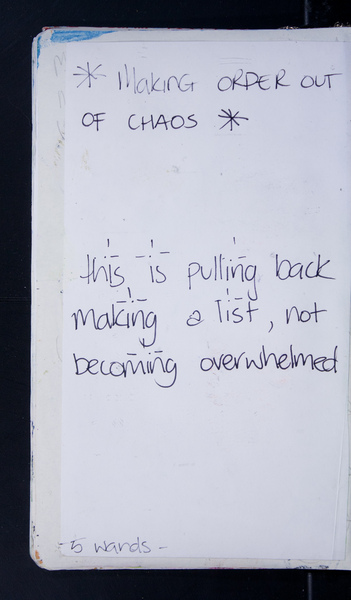 * Making ORDER OUT
OF CHAOS *
this is pulling back
making a list, not
becoming overwhelmed
- 5 wands -